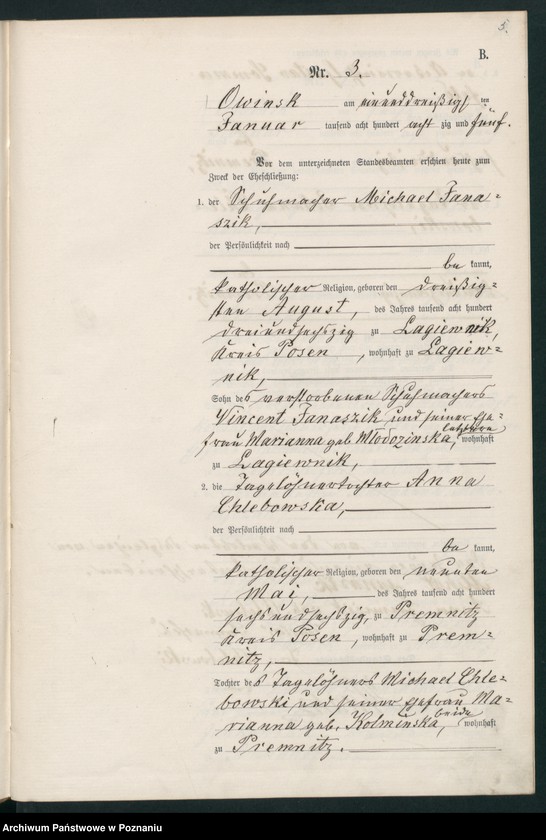 3.
B.
Nr. 3.
Owinsk am einunddreißigsten
Januar tausend acht hundert acht zig und fünf.
Vor dem unterzeichneten Standesbeamten erschien heute zum
Zweck der Eheschließung:
1. der Schuhmacher Michael Jana-
szik,
der Persönlichkeit nach
be kannt,
katholischer Religion, geboren den dreißig-
sten August, des Jahres tausend acht hundert
dreiundsechszig zu Lagiewnik,
Kreis Posen, wohnhaft zu Lagiew-
nik,
Sohn des verstorbenen Schuhmachers
Vincent Janaszik und seiner Ehe-
frau Marianna geb. Mlodozinska, letztere wohnhaft
zu Lagiewnik,
2. die Tagelöhnertochter Anna
Chlebowska,
der Persönlichkeit nach
be kannt,
katholischer Religion, geboren den neunten
Mai, des Jahres tausend acht hundert
sechsundsechszig, zu Premnitz
Kreis Posen, wohnhaft zu Prem-
nitz,
Tochter des Tagelöhners Michael Chle-
bowski und seiner Ehefrau Ma-
rianna geb. Kolminska, beide wohnhaft
zu Premnitz.
Archiwum Państwowe w Poznaniu
Archiwum Państwowe w Poznaniu